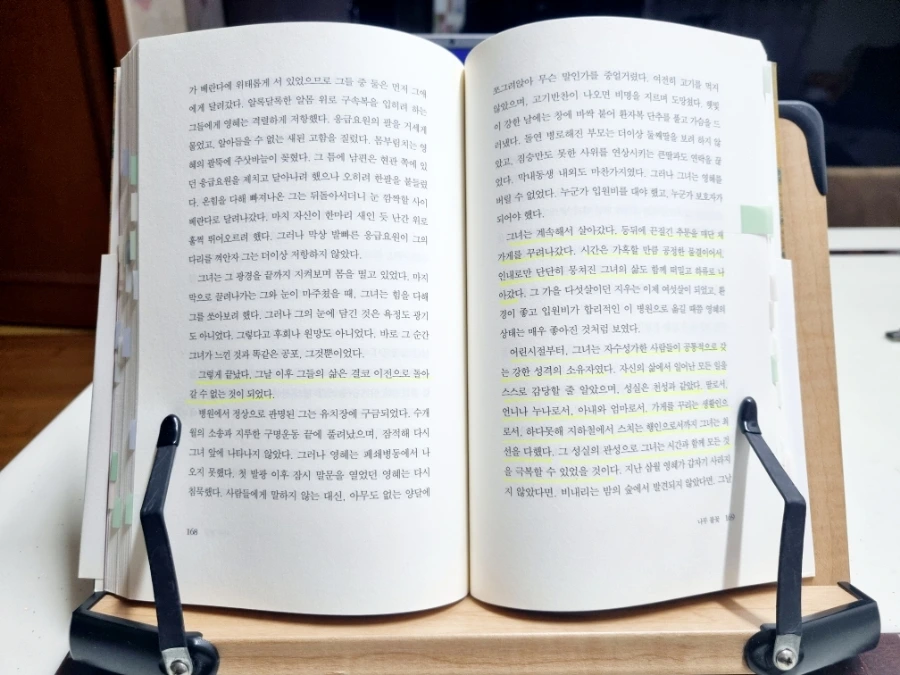 가 베란다에 위태롭게 서 있었으므로 그들 중 둘은 먼저 그에
에게 달려갔다. 알록달록한 알몸 위로 구속복을 입히려 하는
그들에게 영혜는 격렬하게 저항했다. 응급요원의 팔을 거세게
물었고, 알아들을 수 없는 새된 고함을 질렀다. 몸부림치는 영
혜의 팔뚝에 주삿바늘이 꽂혔다. 그 틈에 남편은 현관 쪽에 있
던 응급요원을 제치고 달아나려 했으나 오히려 한팔을 붙들렸
다. 온힘을 다해 빠져나온 그는 뒤돌아서더니 눈 깜짝할 사이
베란다로 달려나갔다. 마치 자신이 한마리 새인 듯 난간 위로
훌쩍 뛰어오르려 했다. 그러나 막상 발빠른 응급요원이 그의
다리를 껴안자 그는 더이상 저항하지 않았다.
그녀는 그 광경을 끝까지 지켜보며 몸을 떨고 있었다. 마지
막으로 끌려나가는 그와 눈이 마주쳤을 때, 그녀는 힘을 다해
그를 쏘아보려 했다. 그러나 그의 눈에 담긴 것은 욕정도 광기
도 아니었다. 그렇다고 후회나 원망도 아니었다. 바로 그 순간
그녀가 느낀 것과 똑같은 공포, 그것뿐이었다.
그렇게 끝났다. 그날 이후 그들의 삶은 결코 이전으로 돌아
갈 수 없는 것이 되었다.
병원에서 정상으로 판명된 그는 유치장에 구금되었다. 수개
월의 소송과 지루한 구명운동 끝에 풀려났으며, 잠적해 다시
그녀 앞에 나타나지 않았다. 그러나 영혜는 폐쇄병동에서 나
오지 못했다. 첫 발광 이후 잠시 말문을 열었던 영혜는 다시
침묵했다. 사람들에게 말하지 않는 대신, 아무도 없는 양달에
168
쪼그려앉아 무슨 말인가를 중얼거렸다. 여전히 고기를 먹지
않았으며, 고기반찬이 나오면 비명을 지르며 도망쳤다. 햇빛
이 강한 날에는 창에 바싹 붙어 환자복 단추를 풀고 가슴을 드
러냈다. 돌연 병로해진 부모는 더이상 둘째딸을 보려 하지 않
았고, 짐승만도 못한 사위를 연상시키는 큰딸과도 연락을 끊
었다. 막내동생 내외도 마찬가지였다. 그러나 그녀는 영혜를
버릴 수 없었다. 누군가 입원비를 대야 했고, 누군가 보호자가
되어야 했다.
그녀는 계속해서 살아갔다. 등뒤에 끈질긴 추문을 매단 채
가게를 꾸려나갔다. 시간은 가혹할 만큼 공정한 물결이어서,
인내로만 단단히 뭉쳐진 그녀의 삶도 함께 떠밀고 하류로 나
아갔다. 그 가을 다섯살이던 지우는 이제 여섯살이 되었고, 환
경이 좋고 입원비가 합리적인 이 병원으로 옮길 때쯤 영혜의
상태는 매우 좋아진 것처럼 보였다.
어린시절부터, 그녀는 자수성가한 사람들이 공통적으로 갖
는 강한 성격의 소유자였다. 자신의 삶에서 일어난 모든 일을
스스로 감당할 줄 알았으며, 성실은 천성과 같았다. 딸로서,
언니나 누나로서, 아내와 엄마로서, 가게를 꾸리는 생활인으
로서, 하다못해 지하철에서 스치는 행인으로서까지 그녀는 최
선을 다했다. 그 성실의 관성으로 그녀는 시간과 함께 모든 것
을 극복할 수 있었을 것이다. 지난 삼월 영혜가 갑자기 사라지
지 않았다면. 비내리는 밤의 숲에서 발견되지 않았다면. 그날
나무 불꽃 169